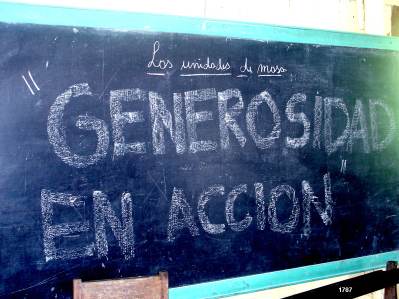 Las unidades de masa
"GENEROSIDAD
EN ACCION"
1787